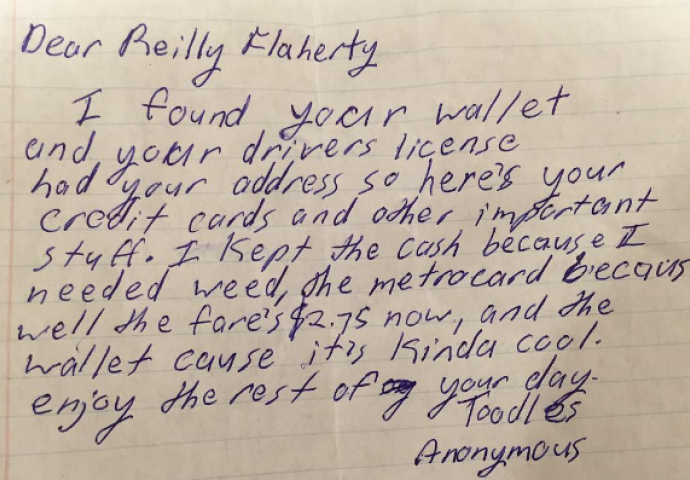 Dear Reilly Flaherty
I found your wallet
and your drivers license
had your address so here's your
credit cards and other important
stuff. I kept the cash because I
needed weed, the metrocard becaus
well the fare's $2.75 now, and the
wallet cause it's kinda cool.
enjoy the rest of your day.
Toodles
Anonymous